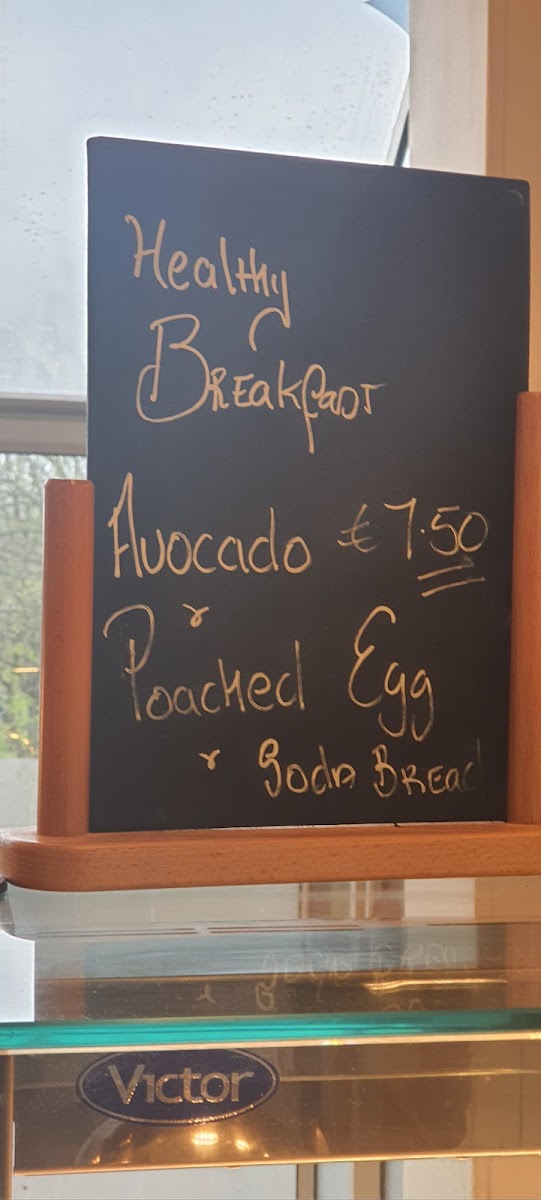 Healthy
Breakfast
Avocado €7.50
&
Poached Egg
& Soda Bread
Victor